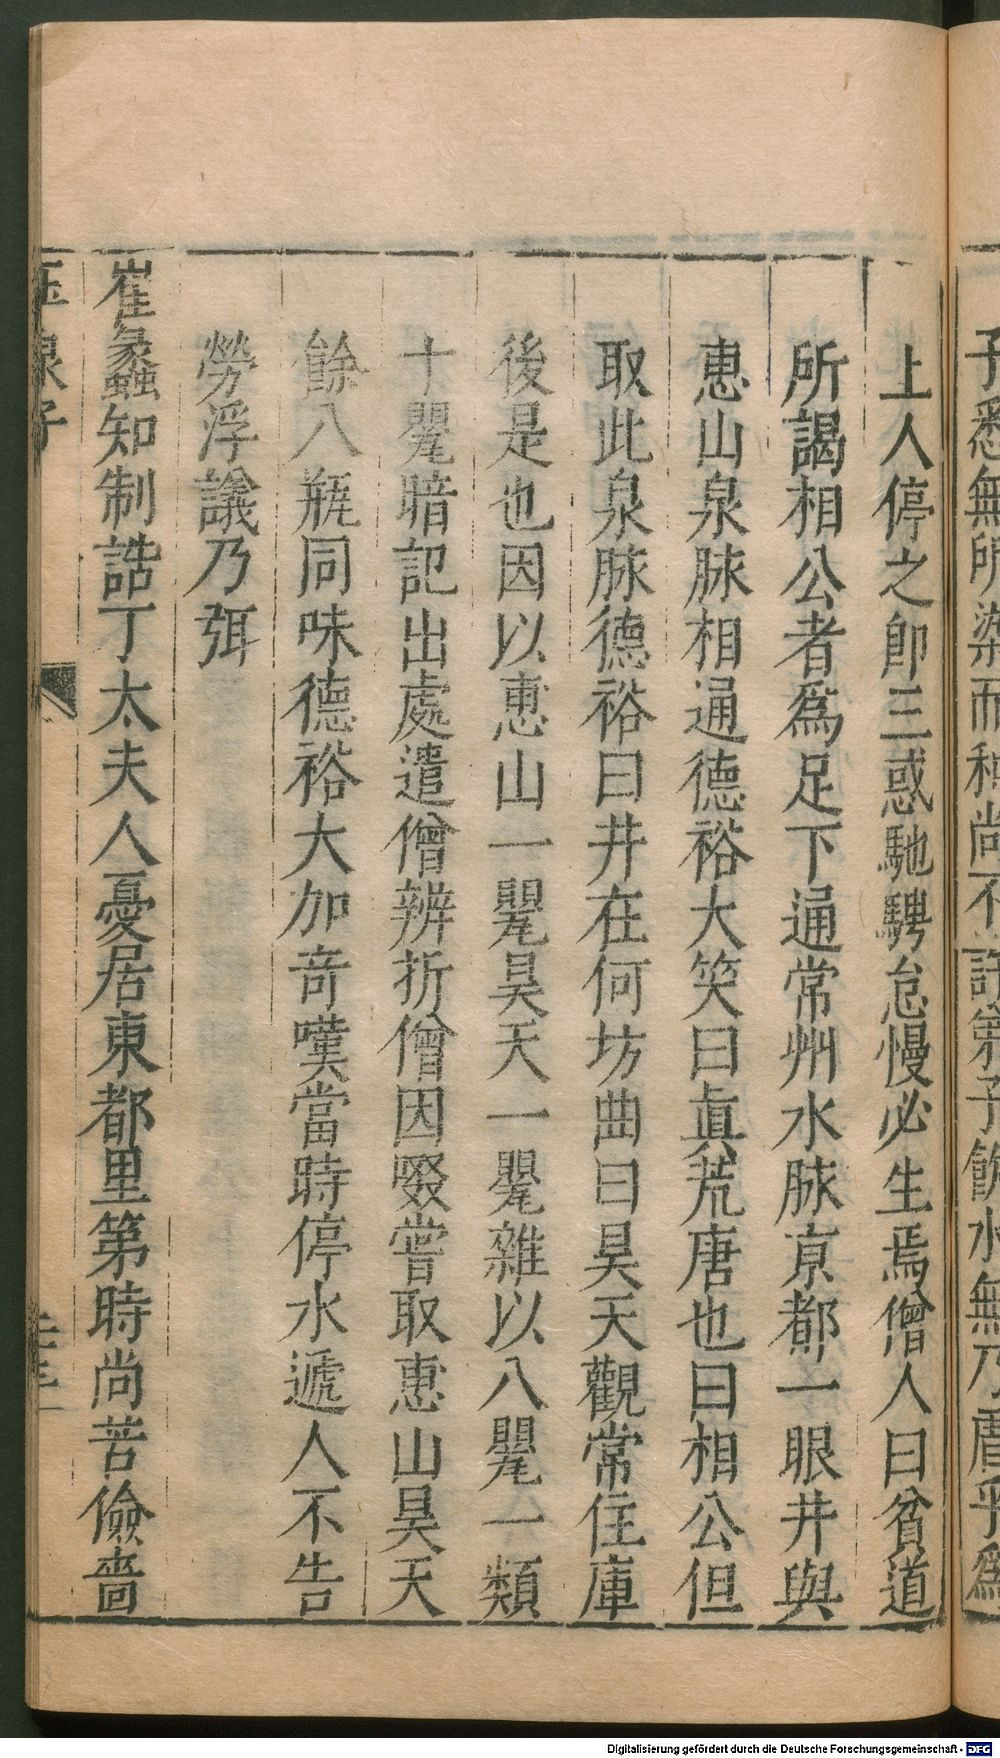 子悉無所染而和尚不許弟子飲水無乃虐乎爲
上人停之即三惑馳騁怠慢必生焉僧人曰貧道
所謁相公者爲足下通常州水脉京都一眼井與
惠山泉脉相通德裕大笑曰眞荒唐也曰相公但
取此泉脉德裕曰井在何坊曲曰昊天觀常住庫
後是也因以惠山一甖昊天一甖雜以八甖一類
十甖暗記出處遣僧辨折僧因啜嘗取惠山昊天
餘八瓶同味德裕大加奇嘆當時停水遞人不告
勞浮議乃弭
崔蠡知制誥丁太夫人憂居東都里第時尚苦儉嗇
玉泉子
Digitalisierung gefördert durch die Deutsche Forschungsgemeinschaft - DFG